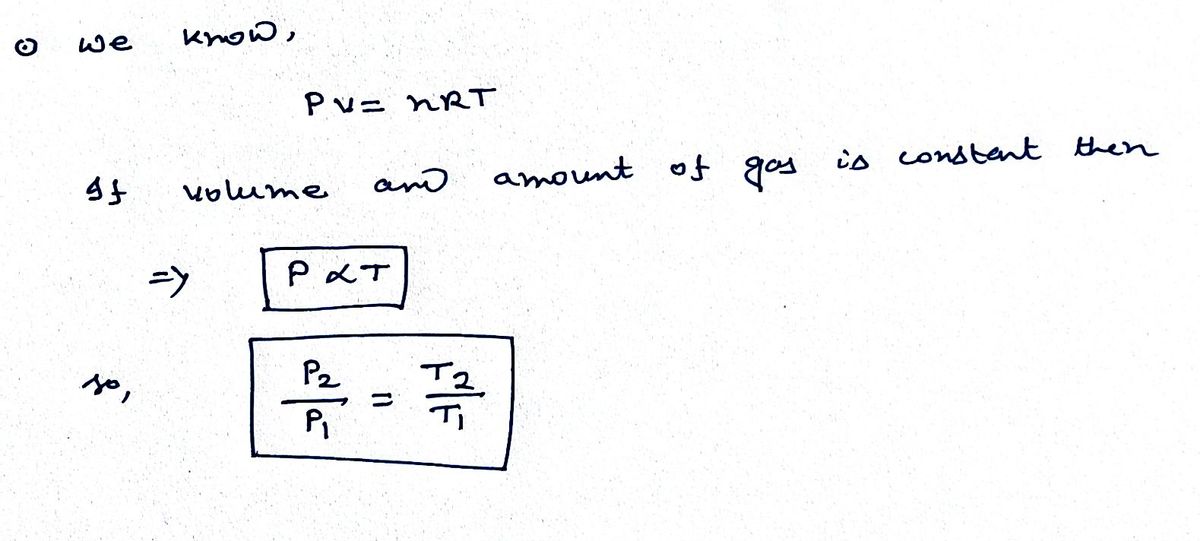 ⊙ we know,
PV = nRT
If volume and amount of gas is constant then
=> P ∝ T
so, P₂/P₁ = T₂/T₁